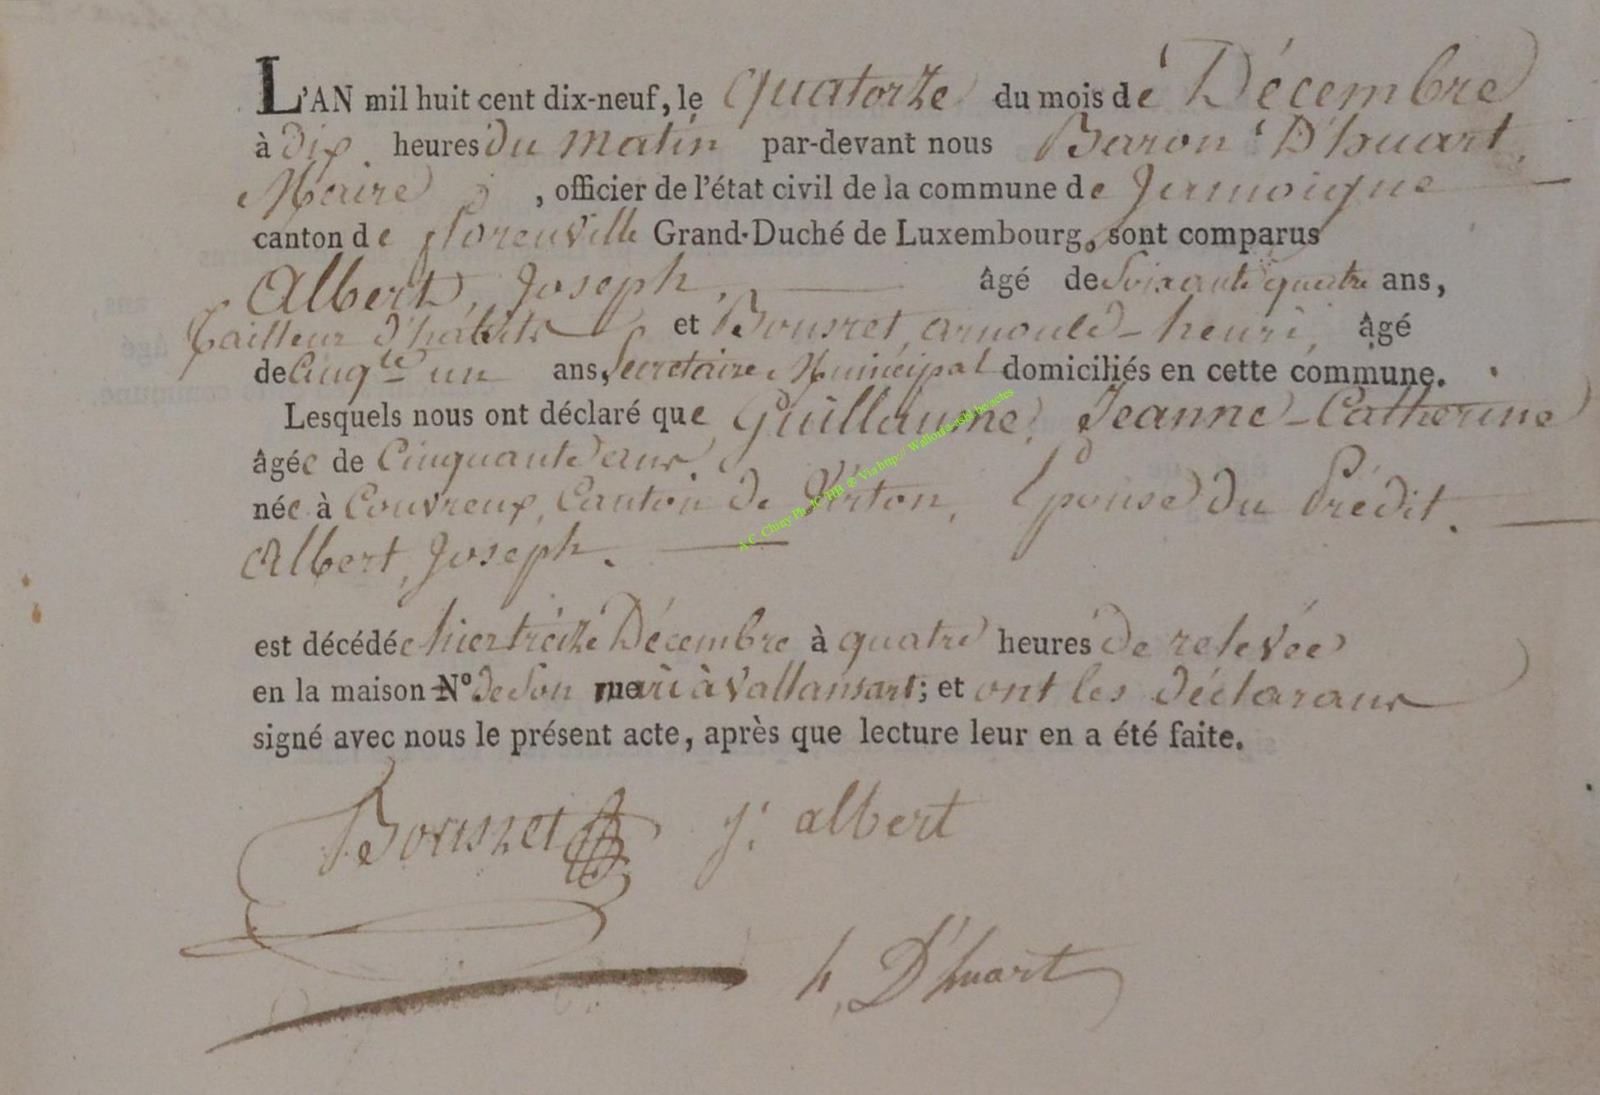 L'AN mil huit cent dix-neuf, le quatorze du mois de Décembre
à dix heures du matin par-devant nous Baron D'huart,
Maire, officier de l'état civil de la commune de Jamoigne
canton de florenville Grand-Duché de Luxembourg, sont comparus
Albert, Joseph, âgé de Soixante quatre ans,
Tailleur d'habits et Bousret, arnould-henri, âgé
de Cinqte un ans, Secretaire Municipal domiciliés en cette commune.
Lesquels nous ont déclaré que Guillaume, Jeanne-Catherine
âgée de Cinquante ans,
née à Couvreux, Canton de Virton, Epouse du Prédit.
Albert, Joseph.
est décédée hier treize Décembre à quatre heures de relevée
en la maison N° de Son mari à Vallansart; et ont les déclarans
signé avec nous le présent acte, après que lecture leur en a été faite.
Bousret j: albert
h. D'huart
A.C. Chiny Ph. JC HB @ Via http:// Wallonia-asbl.be/actes